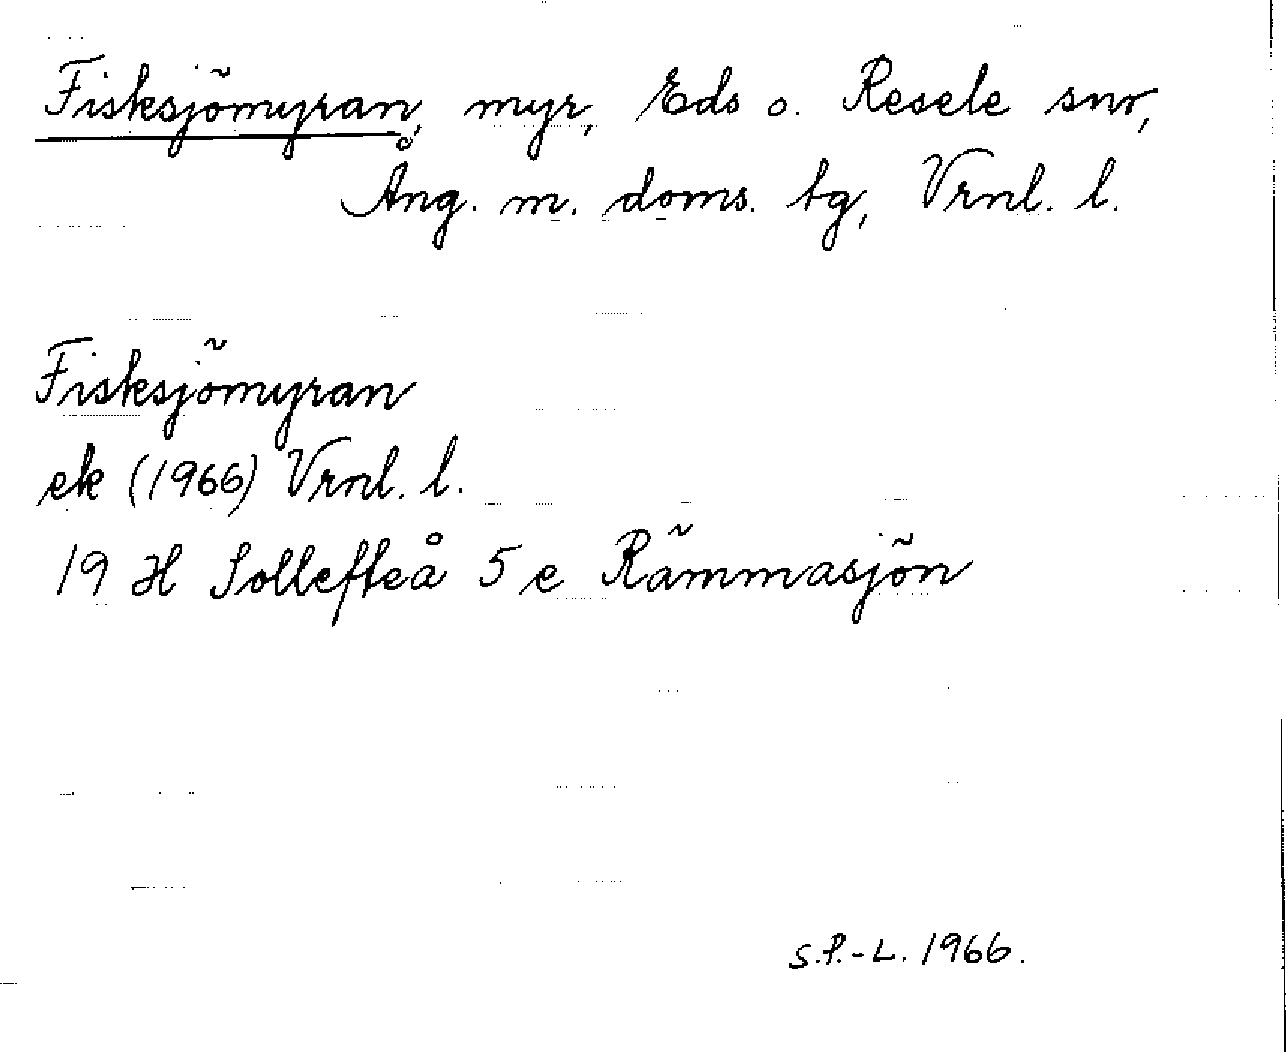 Fisksjömyran, myr, Eds o. Resele snr,
Ång. m. doms. tg, Vrnl. l.
Fisksjömyran
ek (1966) Vrnl. l.
19 H Sollefteå 5 e Rämmasjön
S.P.-L. 1966.